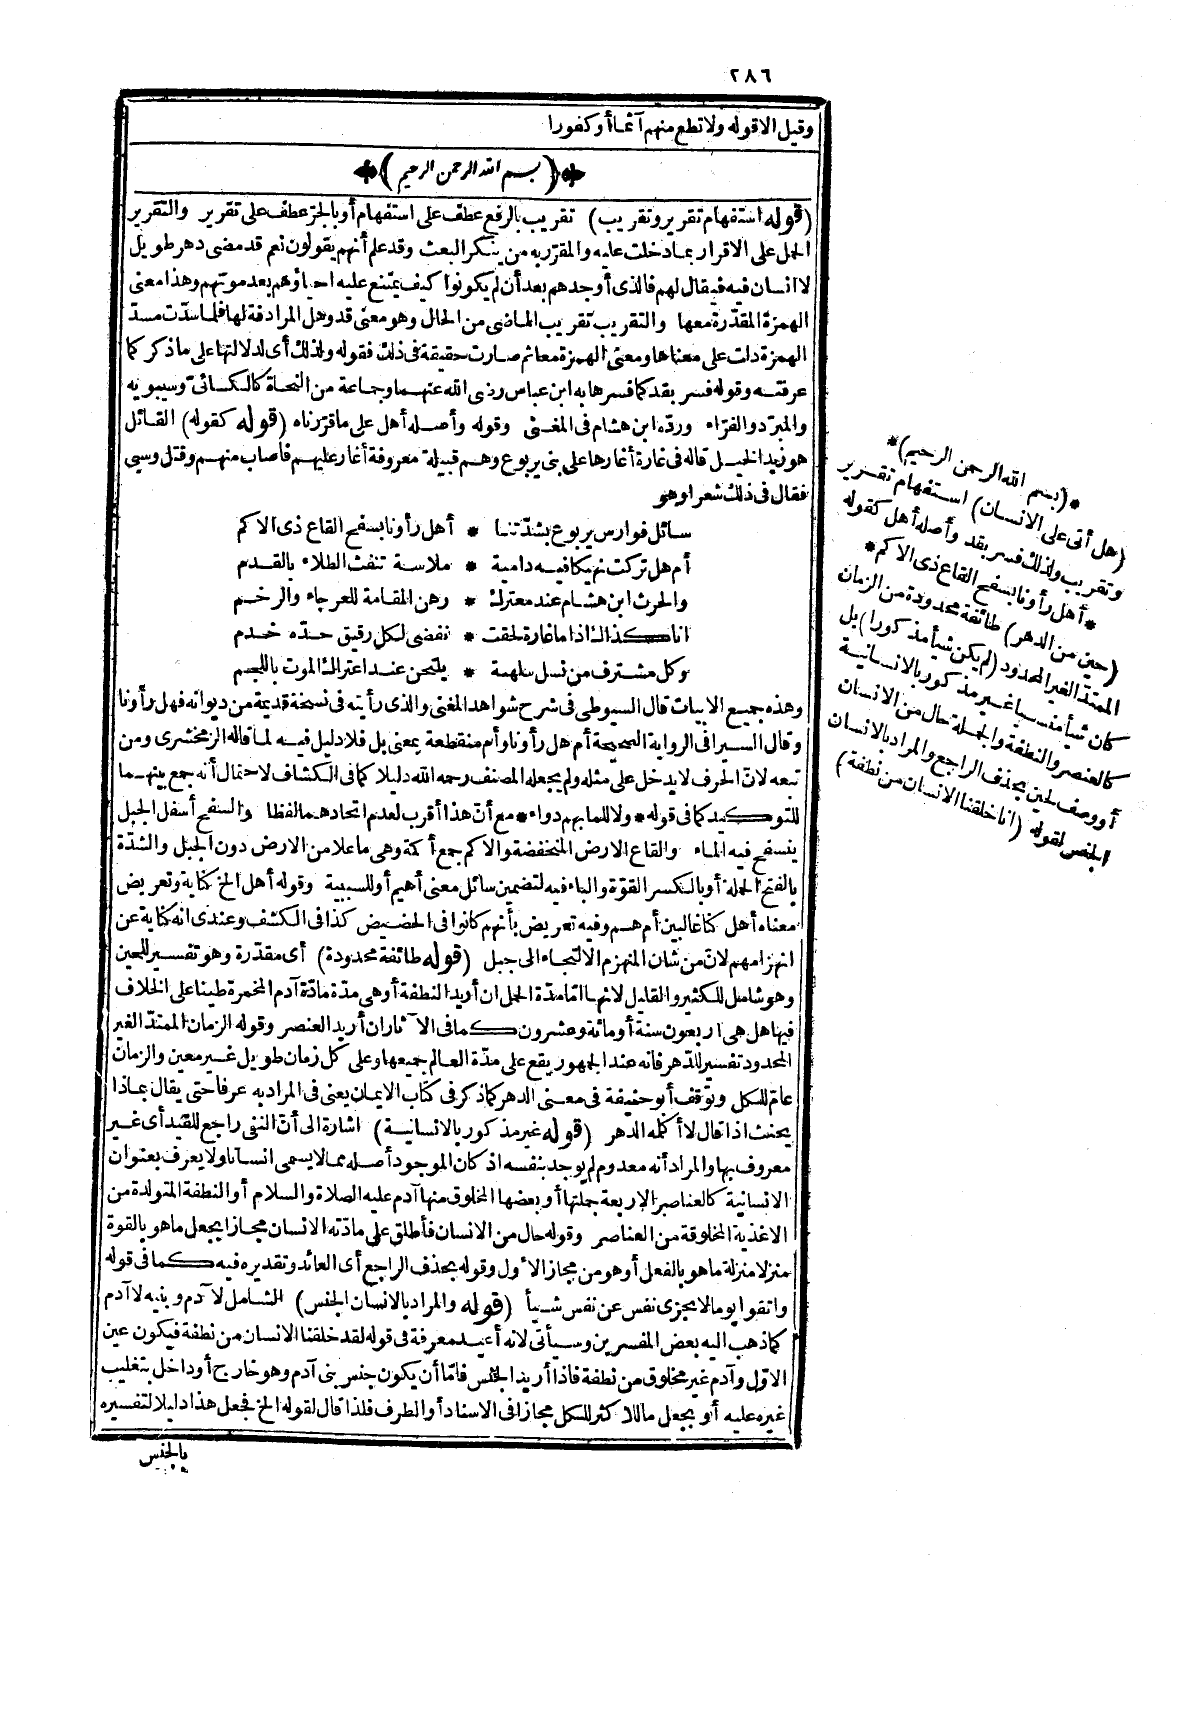 ٢٨٦
وقيل الا قوله ولا تطع منهم آثما أو كفورا
﴿بسم الله الرحمن الرحيم﴾
(قوله استفهام تقرير وتقريب) تقريب بالرفع عطف على استفهام أو بالجر عطف على تقرير والتقرير
الحمل على الاقرار بما دخلت عليه والمقرر به من ينكر البعث وقد علم أنهم يقولون نعم قد مضى دهر طويل
لا انسان فيه فيقال لهم فالذى أوجدهم بعد أن لم يكونوا كيف يمتنع عليه احياؤهم بعد موتهم وهذا معنى
الهمزة المقدّرة معها والتقريب تقريب الماضى من الحال وهو معنى قد وهل المرادفة لها فلما سدّت مسدّ
الهمزة دلت على معناها ومعنى الهمزة معا ثم صارت حقيقة فى ذلك فقوله ولذلك أى لدلالتها على ما ذكر كما
عرفته وقوله فسر بقد كما فسرها به ابن عباس رضى الله عنهما وجماعة من النحاة كالكسائى وسيبويه
والمبرّد والفرّاء وردّه ابن هشام فى المغنى وقوله وأصله أهل على ما قرّرناه (قوله كقوله) القائل
هو زيد الخيل قاله فى غارة أغارها على بنى يربوع وهم قبيلة معروفة أغار عليهم فأصاب منهم وقتل وسبى
فقال فى ذلك شعرا وهو
سائل فوارس يربوع بشدّتنا * أهل رأونا بسفح القاع ذى الاكم
أم هل تركت نهيكا فيه دامية * ملاسة تنفث الطلاء بالقدم
والحرث ابن هشام عند معترك * رهن المقامة للعرجاء والرخم
انا كذلك اذا ما غارة لحقت * نفضى لكل رقيق حدّه خذم
وكل مشترف من نسل سلهبة * يلتحن عند اعتراك الموت باللجم
وهذه جميع الابيات قال السيوطى فى شرح شواهد المغنى والذى رأيته فى نسخة قديمة من ديوانه فهل رأونا
وقال السيرافى الرواية الصحيحة أم هل رأونا وأم منقطعة بمعنى بل فلا دليل فيه لما قاله الزمخشرى ومن
تبعه لانّ الحرف لا يدخل على مثله ولم يجعله المصنف رحمه الله دليلا كما فى الكشاف لاحتمال أنه جمع بينهما
للتوكيد كما فى قوله * ولا للما بهم دواء * مع أنّ هذا أقرب لعدم اتحادهما لفظا والسفح أسفل الجبل
ينسفح فيه الماء والقاع الارض المنخفضة والاكم جمع أكمة وهى ما علا من الارض دون الجبل والشدّة
بالفتح الحملة أو بالكسر القوّة والباء فيه لتضمين سائل معنى أهيم أو للسببية وقوله أهل الخ كناية وتعريض
معناه أهل كنا غالبين أم هم وفيه تعريض بأنهم كانوا فى الحضيض كذا فى الكشف وعندى انه كناية عن
انهزامهم لانّ من شان المنهزم الالتجاء الى جبل (قوله طائفة محدودة) أى مقدّرة وهو تفسير للحين
وهو شامل للكثير والقليل لانها امّا مدّة الحمل ان أريد النطفة أو هى مدّة مادّة آدم المخمرة طينا على الخلاف
فيها هل هى اربعون سنة أو مائة وعشرون كما فى الآثار ان أريد العنصر وقوله الزمان الممتدّ الغير
المحدود تفسير للدّهر فانه عند الجمهور يقع على مدّة العالم جميعها وعلى كل زمان طويل غير معين والزمان
عامّ للكل وتوّقف أبو حنيفة فى معنى الدهر كما ذكر فى كتاب الايمان يعنى فى المراد به عرفا حتى يقال بماذا
يحنث اذا قال لا أكلمه الدهر (قوله غير مذكور بالانسانية) اشارة الى أنّ النفى راجع للقيد أى غير
معروف بها والمراد أنه معدوم لم يوجد بنفسه اذ كان الموجود أصله مما لا يسمى انسانا ولا يعرف بعنوان
الانسانية كالعناصر الاربعة جملتها أو بعضها المخلوق منها آدم عليه الصلاة والسلام أو النطفة المتولدة من
الاغذية المخلوقة من العناصر وقوله حال من الانسان فأطلق على مادّته الانسان مجازا بجعل ما هو بالقوة
منزلا منزلة ما هو بالفعل أو هو من مجاز الأول وقوله بحذف الراجع أى العائد وتقديره فيه كما فى قوله
واتقوا يوما لا يجزى نفس عن نفس شيأ (قوله والمراد بالانسان الجنس) الشامل لآدم وبنيه لا آدم
كما ذهب اليه بعض المفسرين وسيأتى لانه أعيد معرفة فى قوله لقد خلقنا الانسان من نطفة فيكون عين
الاوّل وآدم غير مخلوق من نطفة فاذا أريد الجنس فامّا أن يكون جنس بنى آدم وهو خارج أو داخل بتغليب
غيره عليه أو بجعل ما للاكثر للكل مجازا فى الاسناد أو الطرف فلذا قال لقوله الخ فجعل هذا دليلا لتفسيره
بالجنس
*(بسم الله الرحمن الرحيم)*
(هل أتى على الانسان) استفهام تقرير
وتقريب ولذلك فسر بقد وأصله أهل كقوله
*أهل رأونا بسفح القاع ذى الاكم*
(حين من الدهر) طائفة محدودة من الزمان
الممتدّ الغير المحدود (لم يكن شيأ مذكورا) بل
كان شيأ منسيا غير مذكور بالانسانية
كالعنصر والنطفة والجملة حال من الانسان
أو وصف لحين بحذف الراجع والمراد بالانسان
الجنس لقوله (انا خلقنا الانسان من نطفة)